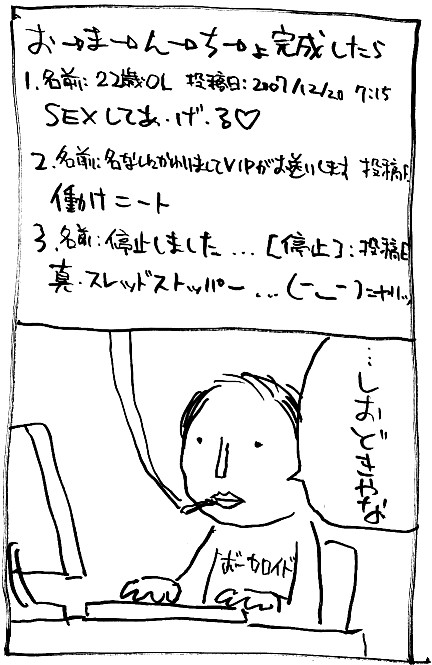 お→ま→ん→ち→ょ完成したら
1.名前:22歳OL 投稿日:2007/12/20 7:15
SEXしてあ・げ・る♡
2.名前:名無しにかわりましてVIPがお送りします 投稿日
働けニート
3.名前:停止しました…[停止]:投稿日
真・スレッドストッパー…(ー_ー)ニヤリッ
…しおどきやな
ボーカロイド